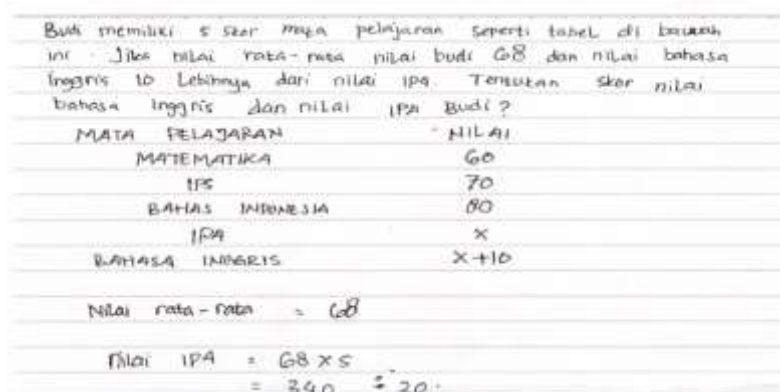 Budi memiliki 5 skor mata pelajaran seperti tabel di bawah
ini. Jika nilai rata-rata nilai budi 68 dan nilai bahasa
Inggris 10 Lebihnya dari nilai IPA. Tentukan skor nilai
bahasa Inggris dan nilai IPA Budi?
MATA PELAJARAN NILAI
MATEMATIKA 60
IPS 70
BAHAS INDONESIA 80
IPA X
BAHASA INGGRIS X+10
Nilai rata-rata = 68
Nilai IPA = 68 x 5
= 340 : 20.